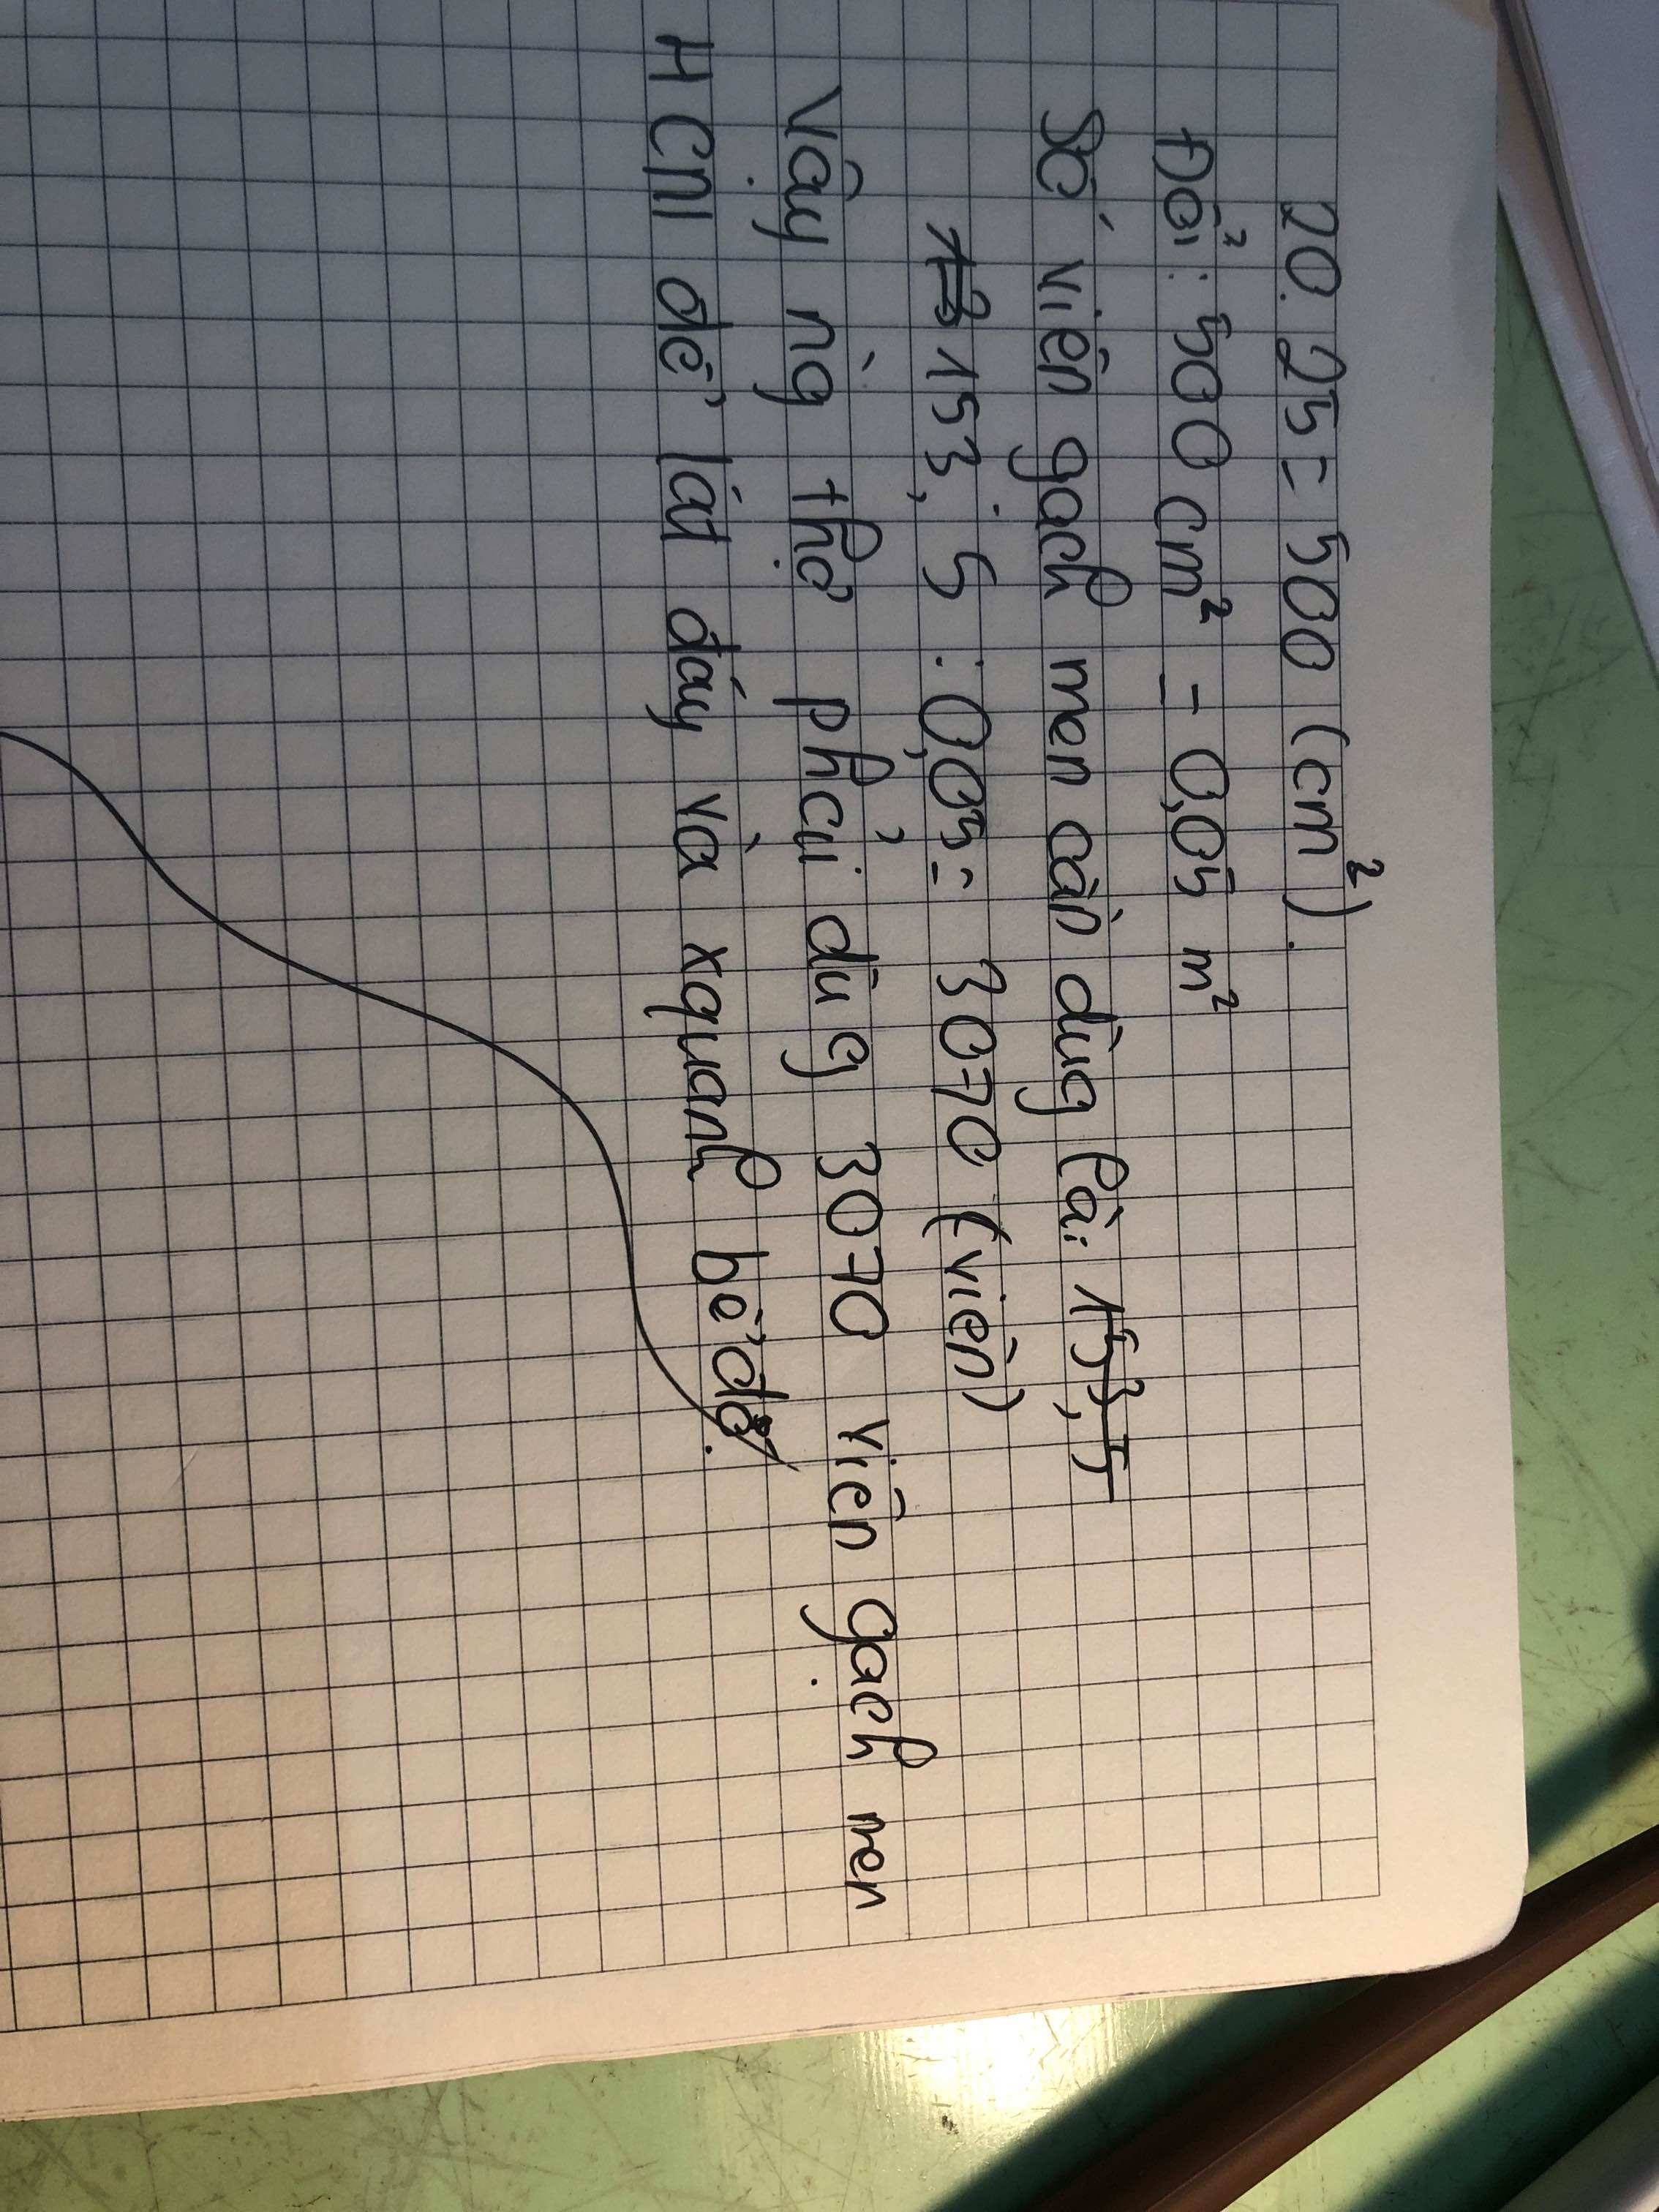 20.25 = 500 (cm²).
Đổi: 500 cm² = 0,05 m²
Số viên gạch men cần dùg là: 153,5
13 153,5 : 0,05 = 3070 (viên)
Vậy ng thợ phải dùg 3070 viên gạch men
HCN để lát đáy và xquanh bể đó.